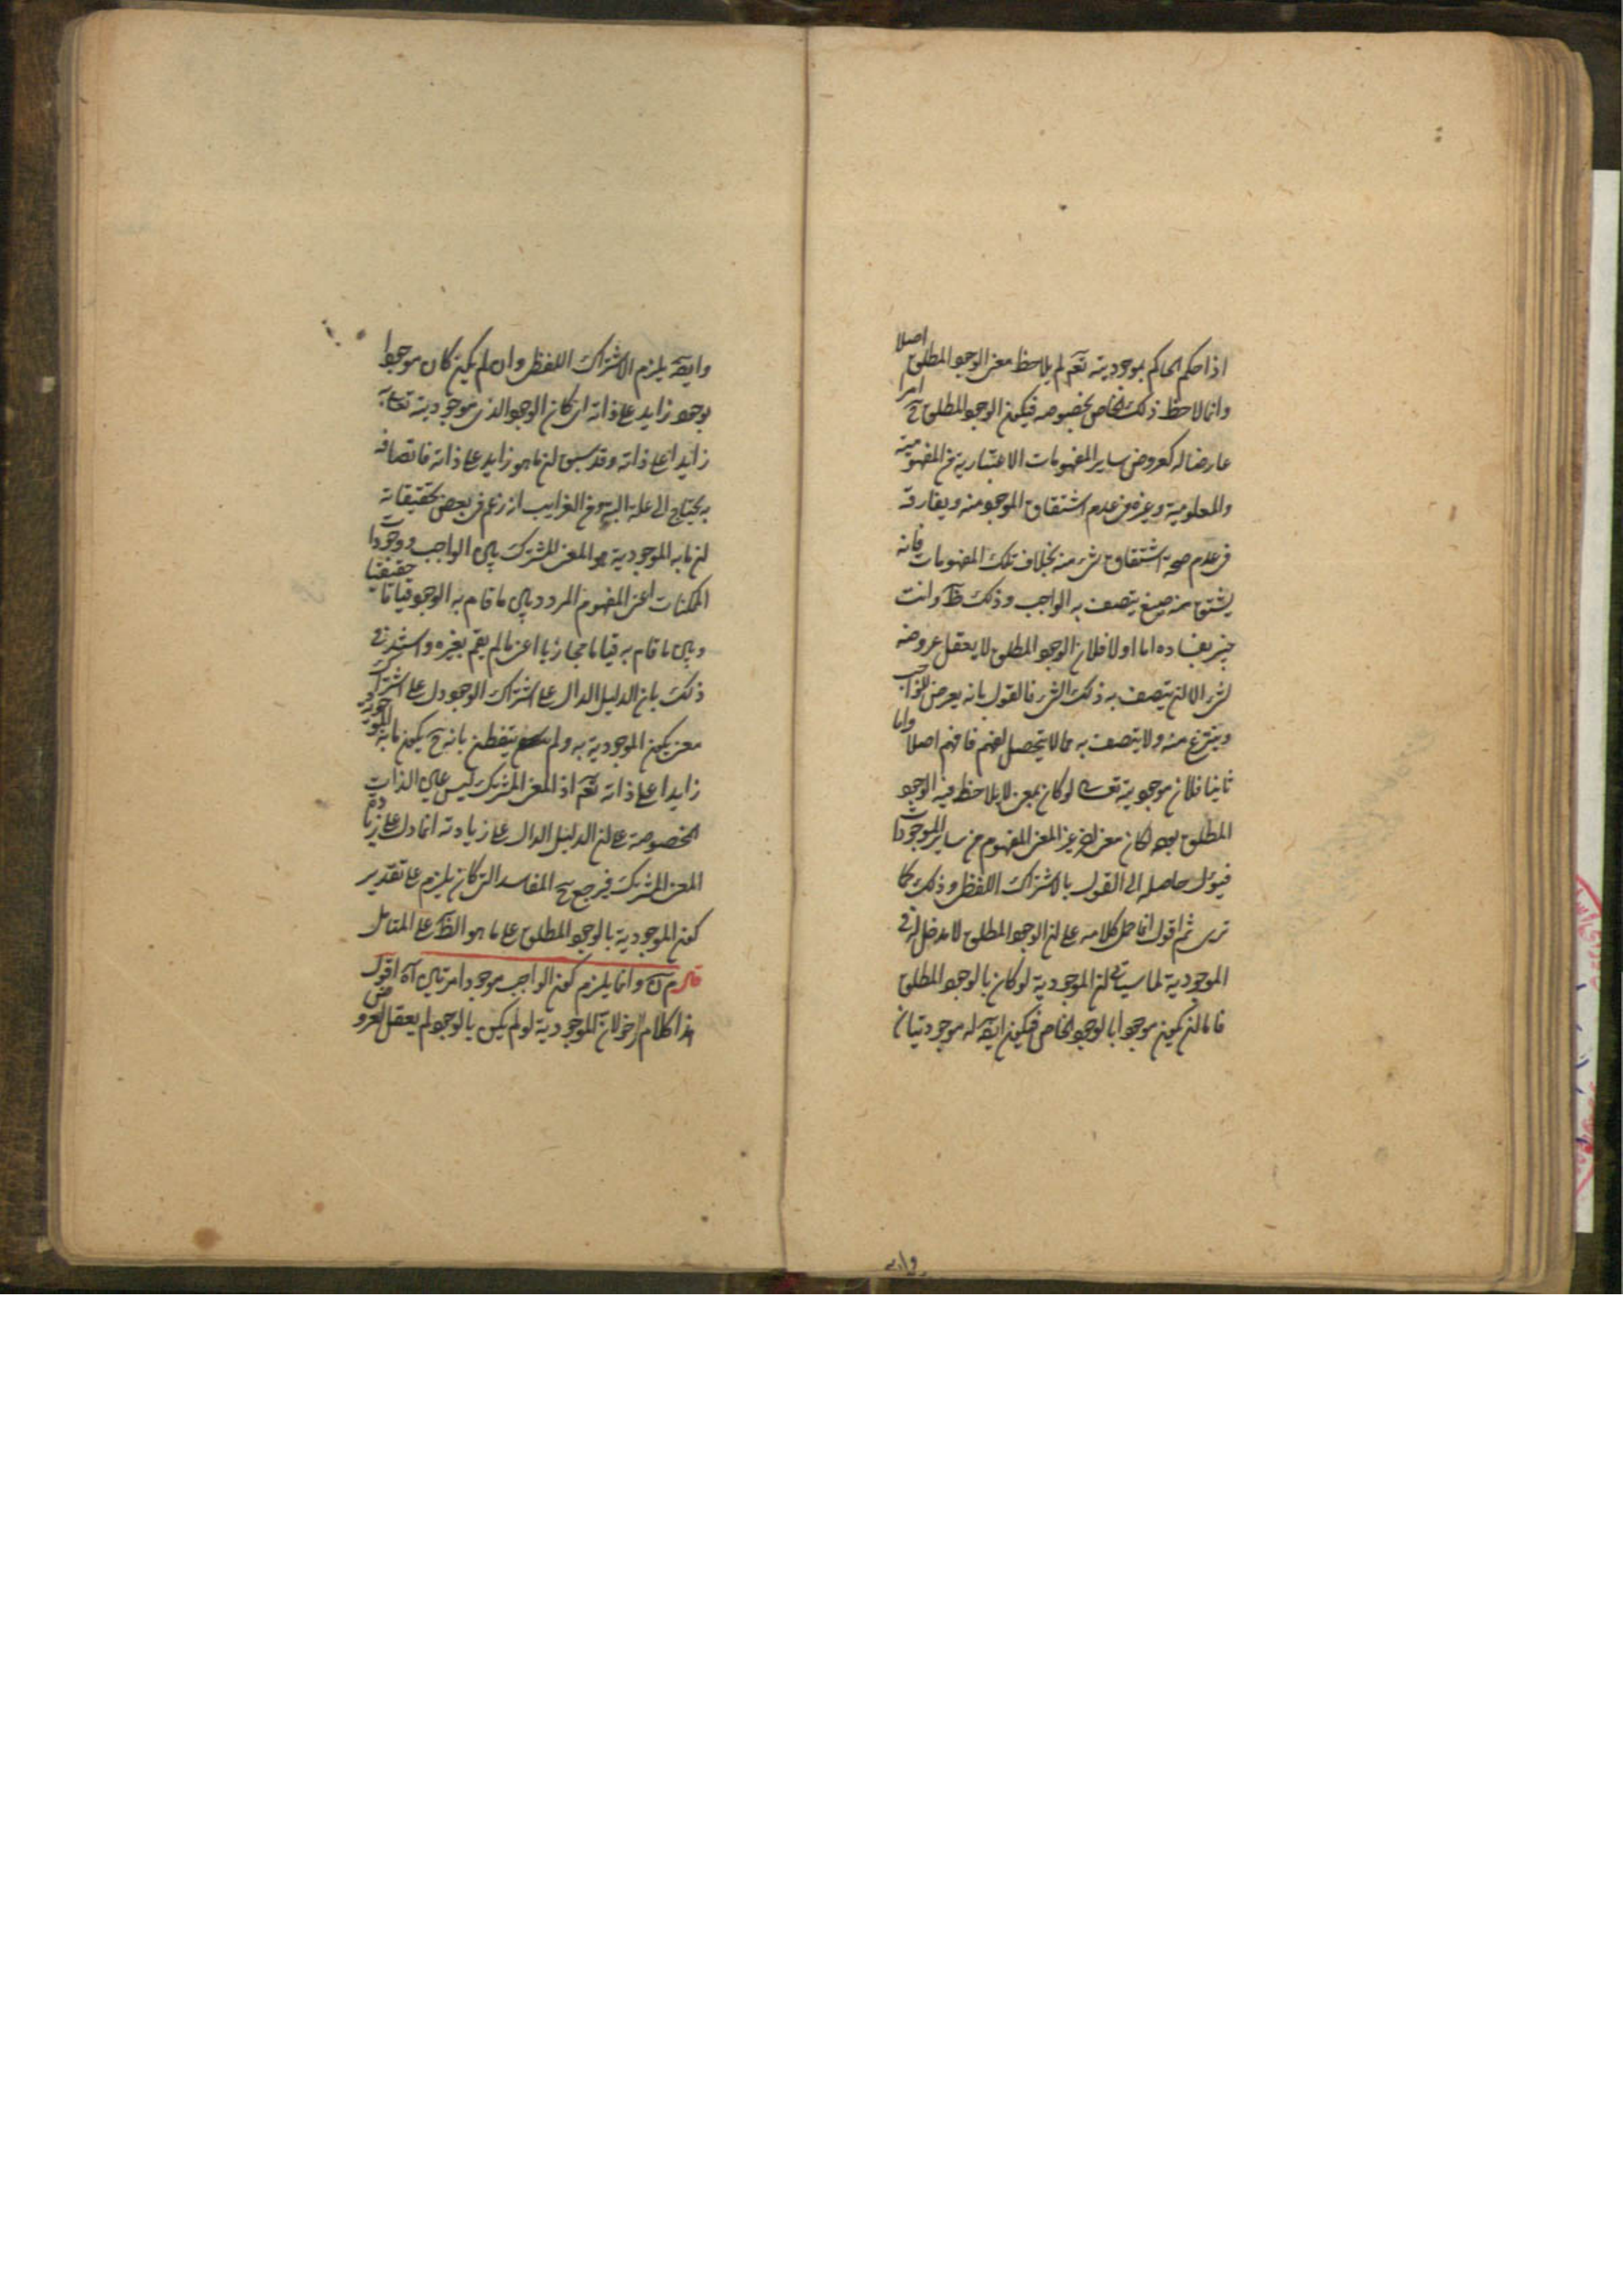 اذا حكم الحاكم بموجوديته تعم لم يلاحظ معنى الوجود المطلق اصلا
وانما لاحظ ذلك الخاص بخصوصه فيكون الوجود المطلق ح امرا
عارضا له كعروض ساير المفهومات الاعتبارية من المفهومية
والمعلومية وغيره في عدم اشتقاق الموجود منه ويفارقه
في عدم صحة اشتقاق شيء منه بخلاف تلك المفهومات فانه
يشتق منه صيغ يتصف به الواجب وذلك ظ وانت
خبير بفساده اما اولا فلان الوجود المطلق لا يعقل عروضه
لشيء الا لن يتصف به ذلك الشيء فالقول بانه يعرض للواجب
وينتزع منه ولا يتصف به مما لا يتحصل لفهم فافهم اصلا واما
ثانيا فلان موجوديته تعالى لو كان بمعنى لا يلاحظ فيه الوجود
المطلق لكان معنى غير المعنى المفهوم من ساير الموجودات
فيؤل حاصله الى القول بالاشتراك اللفظي وذلك كما
ترى ثم اقول انما حمل كلامه على لن الوجود المطلق لا مدخل له في
الموجودية لما سياتي لن الموجودية لو كان بالوجود المطلق
فاما لن يكون موجودا بالوجود الخاص فيكون ايضا له موجوديتان
وايضا
وايضا يلزم الاشتراك اللفظي وان لم يكن كان موجودا
بوجود زايد على ذاته اي كان الوجود الذي موجوديته تعالى به
زايدا على ذاته وقد سبق لن ما هو زايد على ذاته فاتصافه
به يحتاج الى علة البتة ومن الغرايب انه زعم في بعض تحقيقاته
لن ما به الموجودية هو المعنى المشترك بين الواجب ووجودات
الممكنات اعني المفهوم المردد بين ما قام به الوجود قياما حقيقيا
وبين ما قام به قياما مجازيا اعني ما لم يقم بغيره واستدل في
ذلك بان الدليل الدال على اشتراك الوجود دل على اشتراك
معنى يكون الموجودية به ولم يتفطن بانه ح يكون ما به الموجودية
زايدا على ذاته تعم اذ المعنى المشترك ليس عين الذات
المخصوصة على لن الدليل الدال على زيادته انما دل على زيادة
المعنى المشترك فيرجع ح المفاسد التي كان يلزم على تقدير
كون الموجودية بالوجود المطلق على ما هو الظ على المتامل
قال م وانما يلزم كون الواجب موجودا مرتين اه اقول
هذا كلام لان الموجودية لو لم يكن بالوجود لم يعقل لعروض